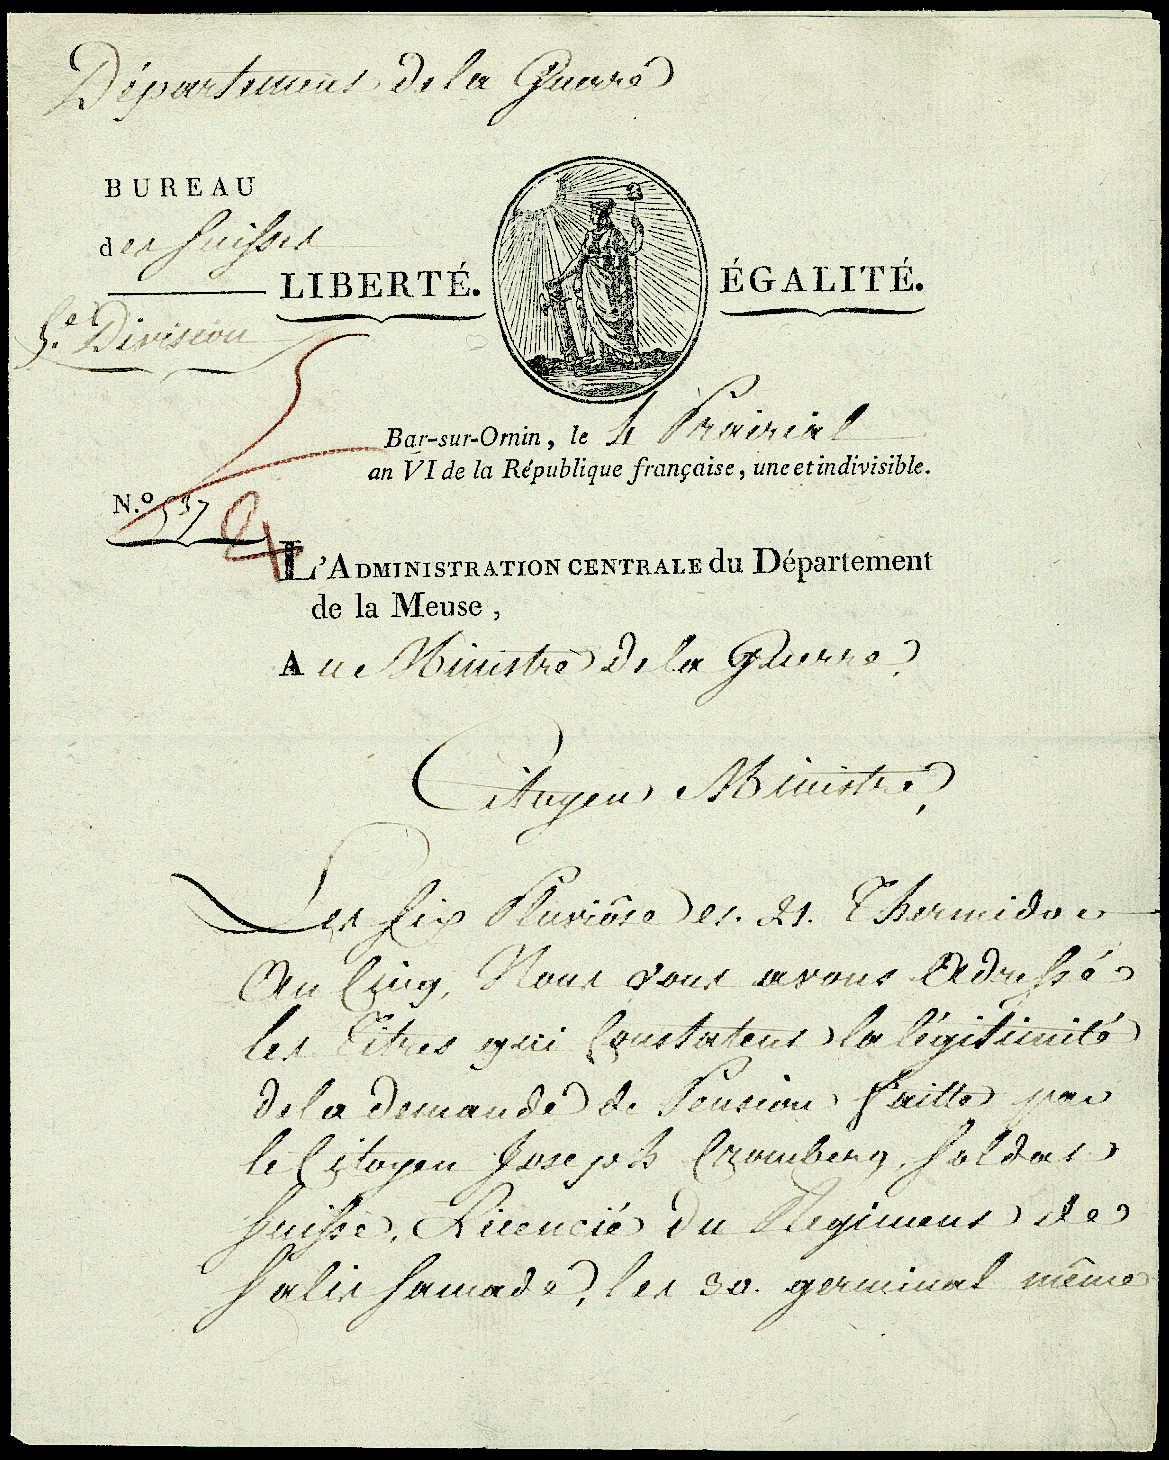 Département de la Guerre
BUREAU
des Suisses
LIBERTÉ. ÉGALITÉ.
5.e Division
Bar-sur-Ornin, le 4 Prairial
an VI de la République française, une et indivisible.
N.o 537
L'ADMINISTRATION CENTRALE du Département
de la Meuse,
Au Ministre de la Guerre.
Citoyen Ministre,
Les Six Pluviôse et 21. Thermidor
An Cinq, Nous vous avons Adressé
les Titres qui Constatent la légitimité
de la demande de Pension faitte par
le Citoyen Joseph Cromberg, Soldat
Suisse, Licencié du Regiment de
Salis Samade, les 30. germinal même